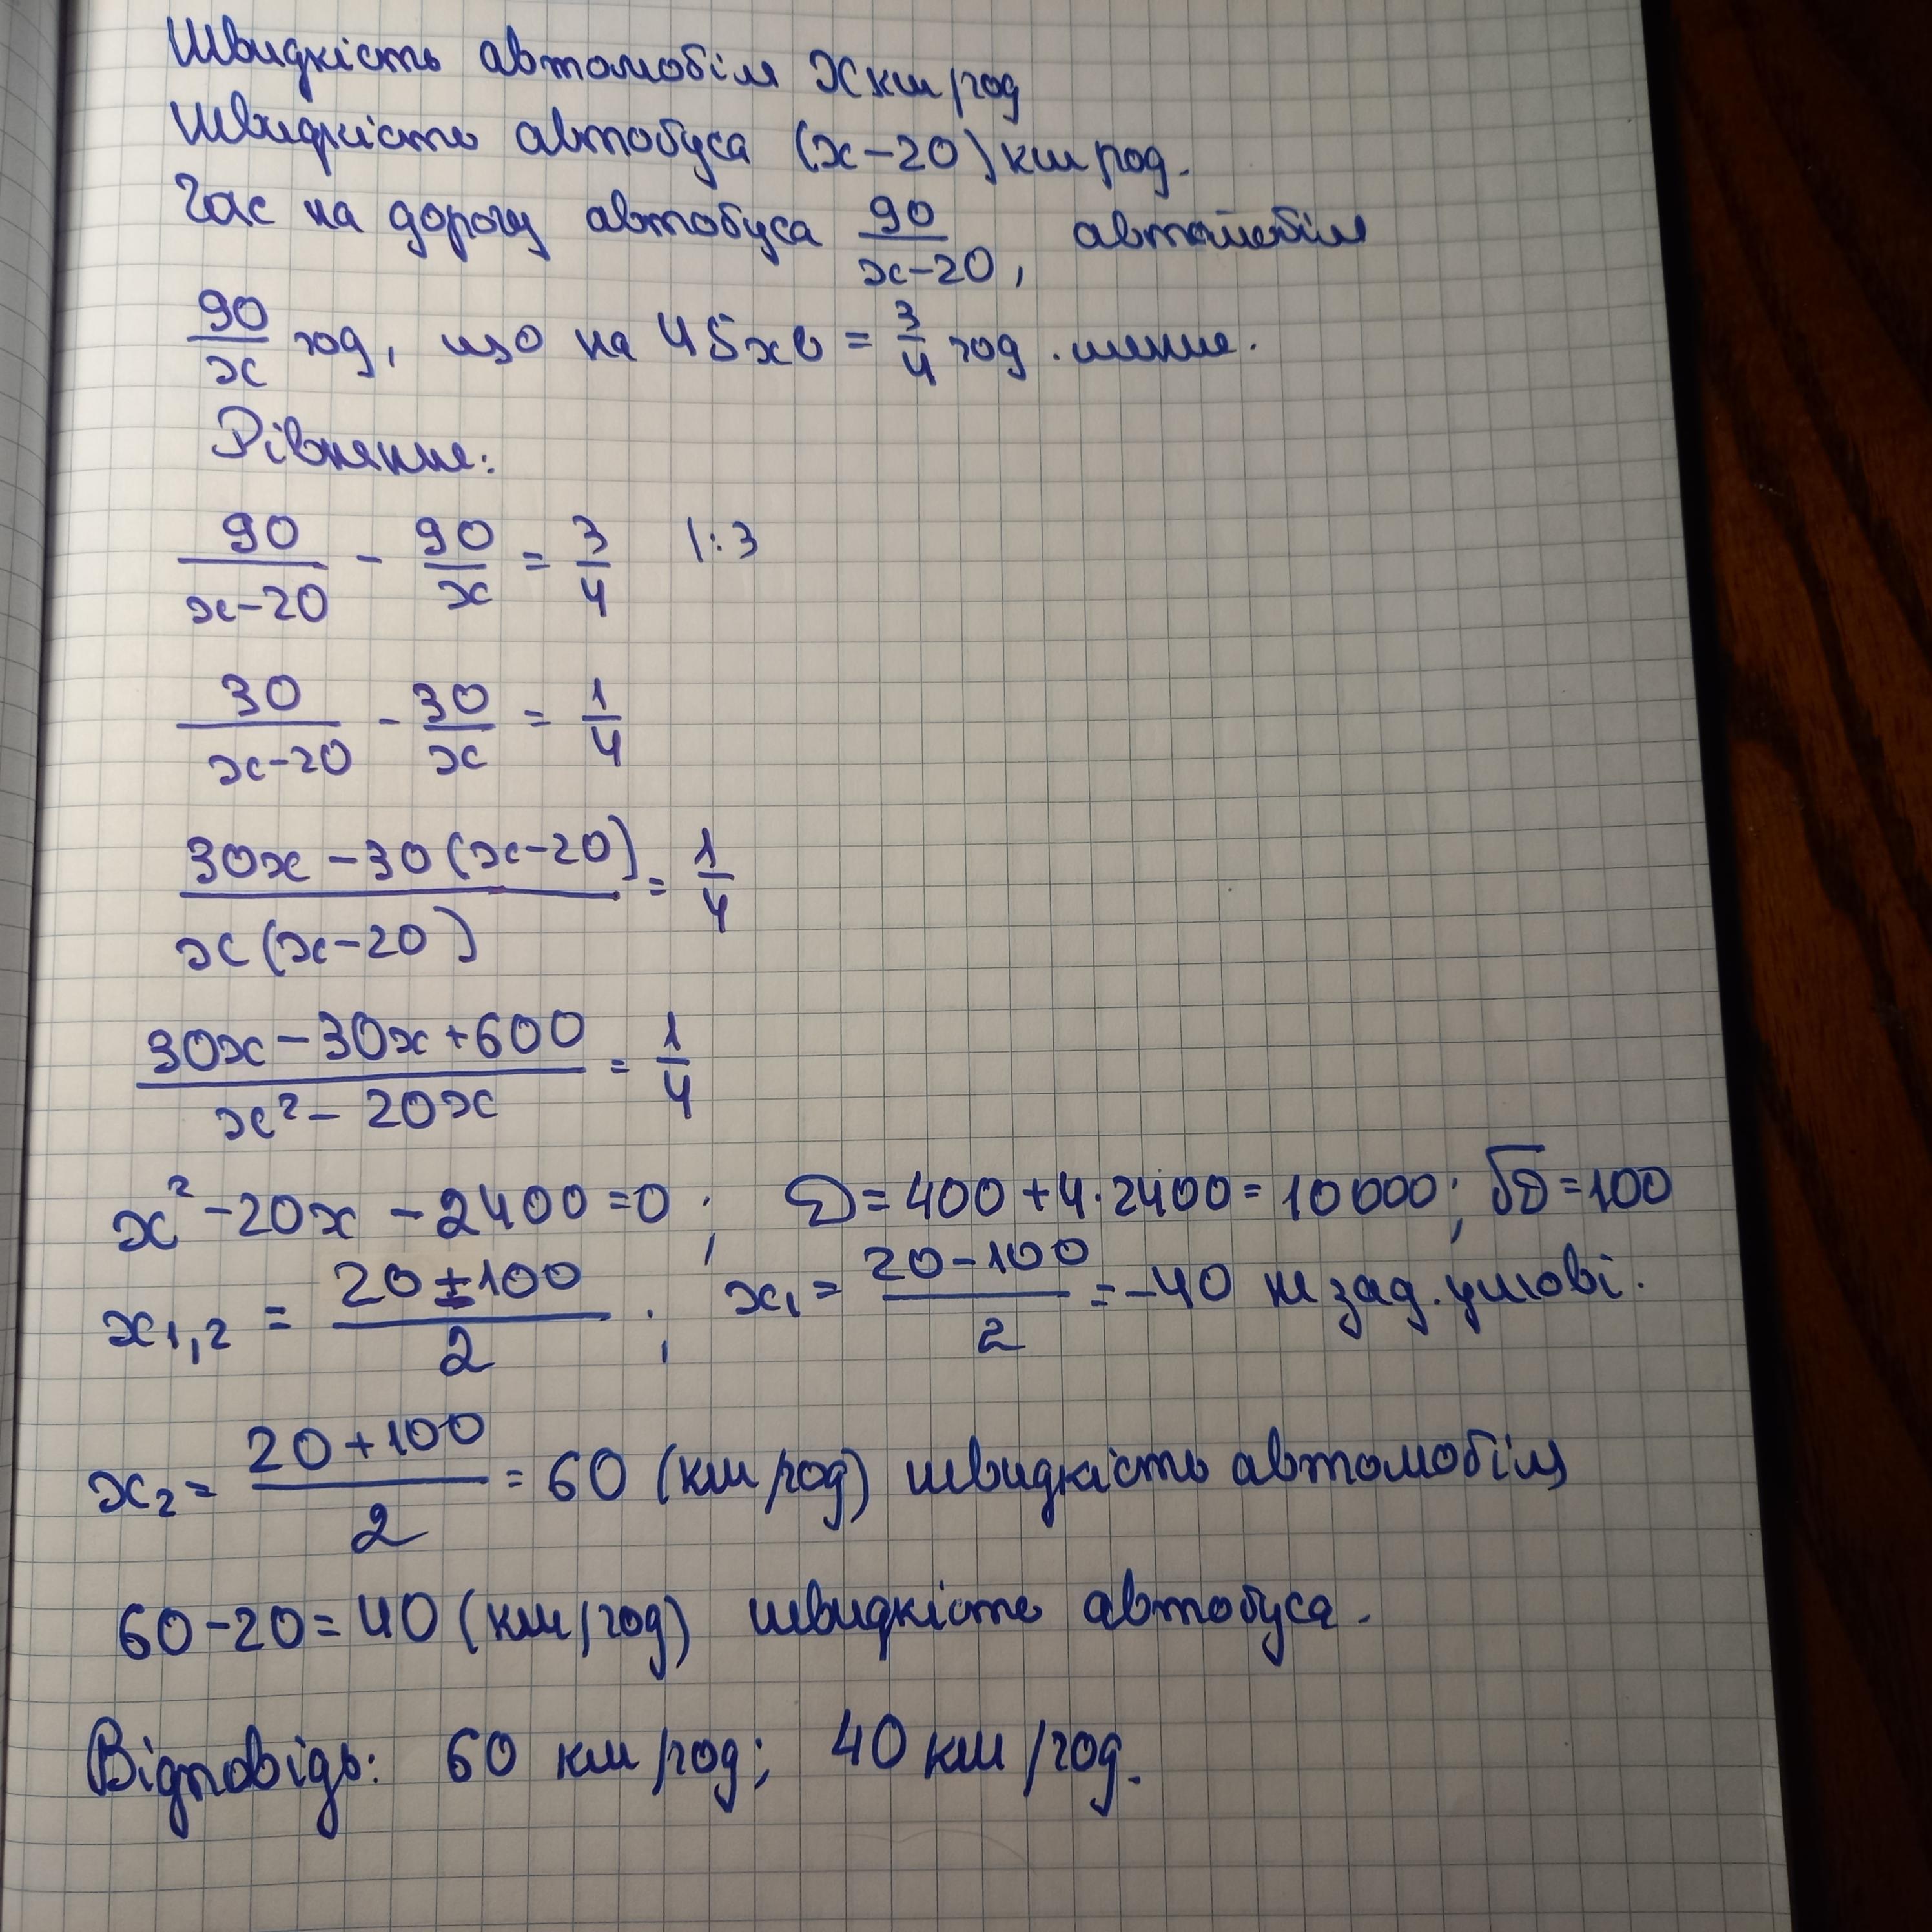 Швидкість автомобіля x км/год
Швидкість автобуса (x-20) км/год.
Час на дорогу автобуса 90/(x-20), автомобіля
90/x год, що на 45 хв = 3/4 год. менше.
Рівняння:
90/(x-20) - 90/x = 3/4 |:3
30/(x-20) - 30/x = 1/4
(30x-30(x-20))/(x(x-20)) = 1/4
(30x-30x+600)/(x²-20x) = 1/4
x²-20x-2400=0; D=400+4·2400=10000; √D=100
x₁,₂ = (20±100)/2; x₁ = (20-100)/2 = -40 не зад. умові.
x₂ = (20+100)/2 = 60 (км/год) швидкість автомобіля
60-20=40 (км/год) швидкість автобуса.
Відповідь: 60 км/год; 40 км/год.